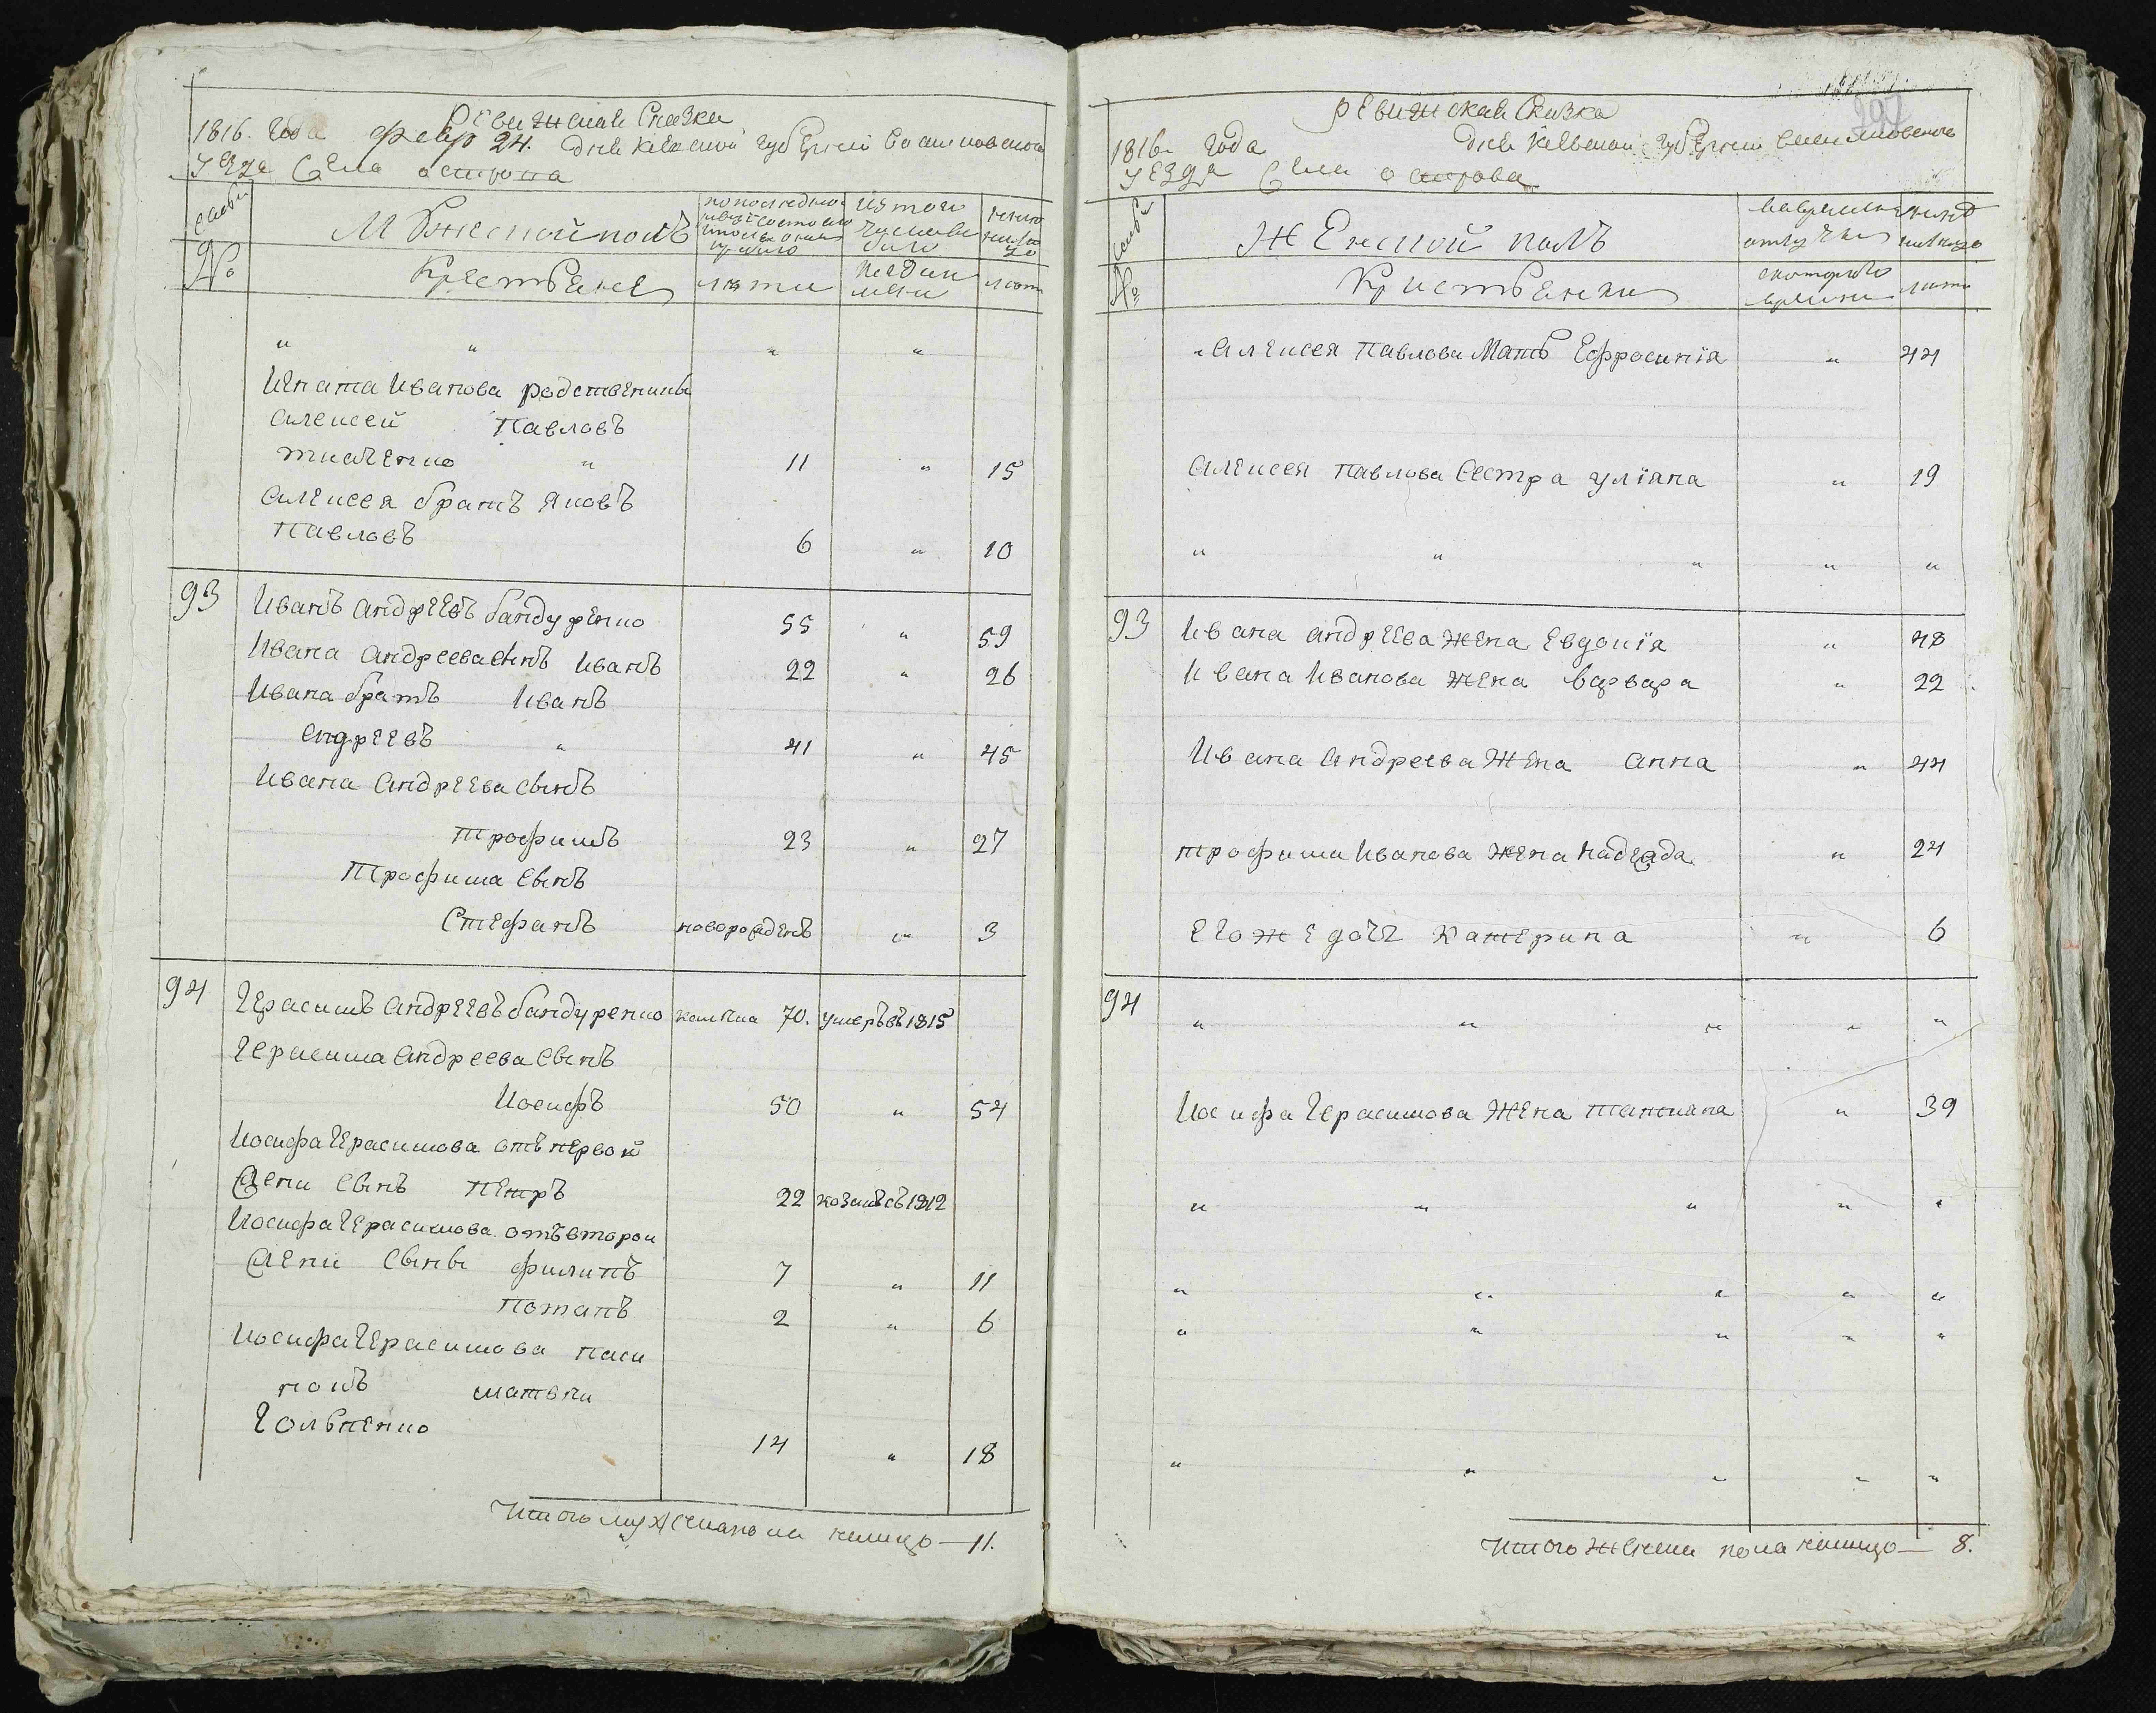 Ревижская Сказка
1816. года февр 24. дня Киевской губернии Васильковскаго
уезда Села острова
семьи
№
Мужеской полъ
Крестьяне
лета
лета
" " " "
Игната Иванова родственникъ
Алексей Павловъ
Ткаченко " 11 " 15
Алексея братъ Яковъ
Павловъ 6 " 10
93 Иванъ Андреевъ бандуренко 55 " 59
Ивана Андреева сынъ Иванъ 22 " 26
Ивана братъ Иванъ
Андреевъ " 41 " 45
Ивана Андреева сынъ
Трофимъ 23 " 27
Трофима сынъ
Стефанъ новорожденъ " 3
94 Герасимъ Андреевъ бандуренко 70. умеръ въ 1815
Герасима Андреева сынъ
Иосифъ 50 " 54
Иосифа Герасимова отъ первой
жены сынъ Петръ 22 козакъ съ 1812
Иосифа Герасимова отъ второй
жены сыны филипъ 7 " 11
Потапъ 2 " 6
Иосифа Герасимова пасы
нокъ матвей
Гольпенко 14 " 18
Итого мужеска пола налицо — 11.
Ревижская Сказка
1816 года дня Киевской губернии Васильковскаго
уезда Села острова
семьи
№
Женской полъ
Крестьянки
во временной отлучке
ныне налицо
с которого времени
лета
" Алексея Павлова Мать Ефросинія " 44
Алексея Павлова Сестра уліяна " 19
" " " " "
93 Ивана Андреева жена Евдокія " 48
Ивана Иванова жена варвара " 22
Ивана Андреева жена анна " 44
трофима Иванова жена надежда " 24
Его же дочь Катерина " 6
94 " " " " "
Иосифа Герасимова жена татиана " 39
" " " " "
" " " " "
" " " " "
" " " " "
Итого женска пола налицо — 8.